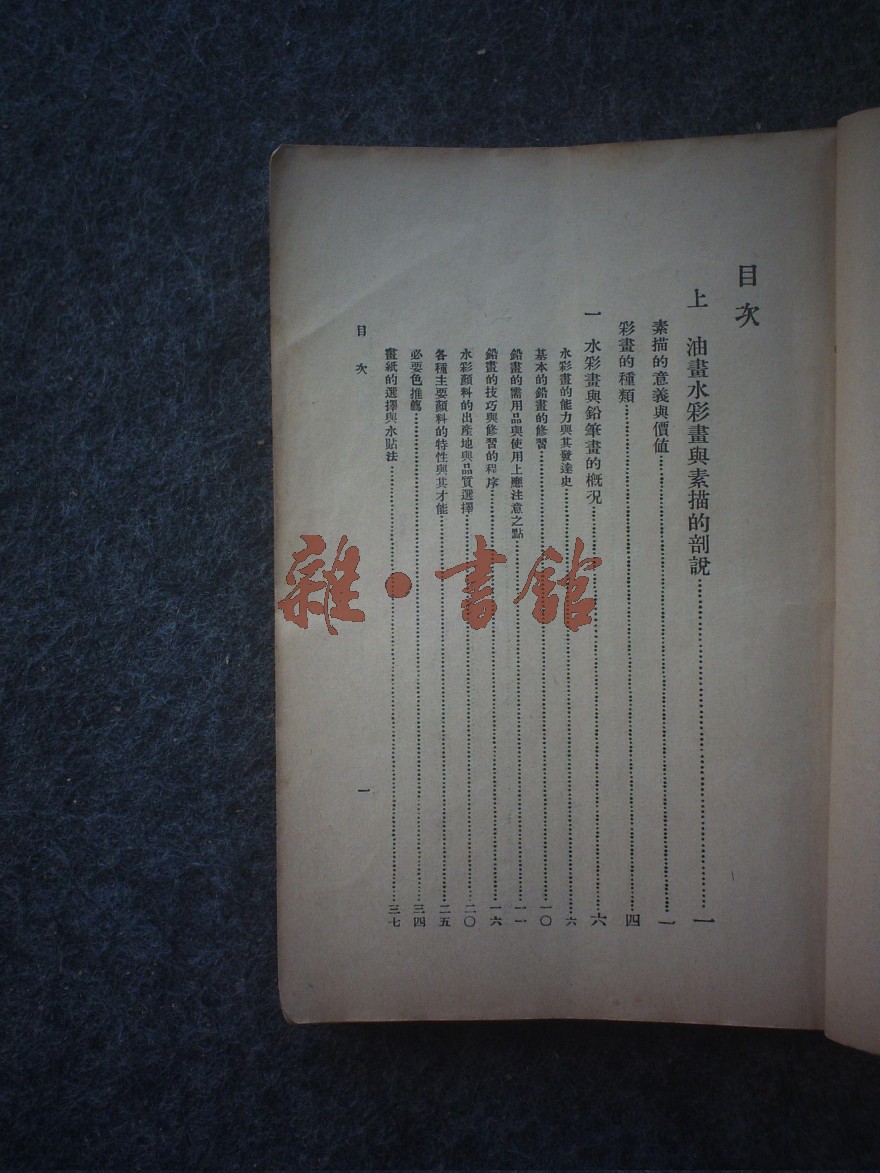 目次
上 油畫水彩畫與素描的剖說……一
素描的意義與價値……一
彩畫的種類……四
一 水彩畫與鉛筆畫的槪況……六
水彩畫的能力與其發達史……六
基本的鉛畫的修習……一〇
鉛畫的需用品與使用上應注意之點……一一
鉛畫的技巧與修習的程序……一六
水彩顏料的出產地與品質選擇……二〇
各種主要顏料的特性與其才能……二五
必要色推薦……三四
畫紙的選擇與水貼法……三七
目次 一
雜·書館